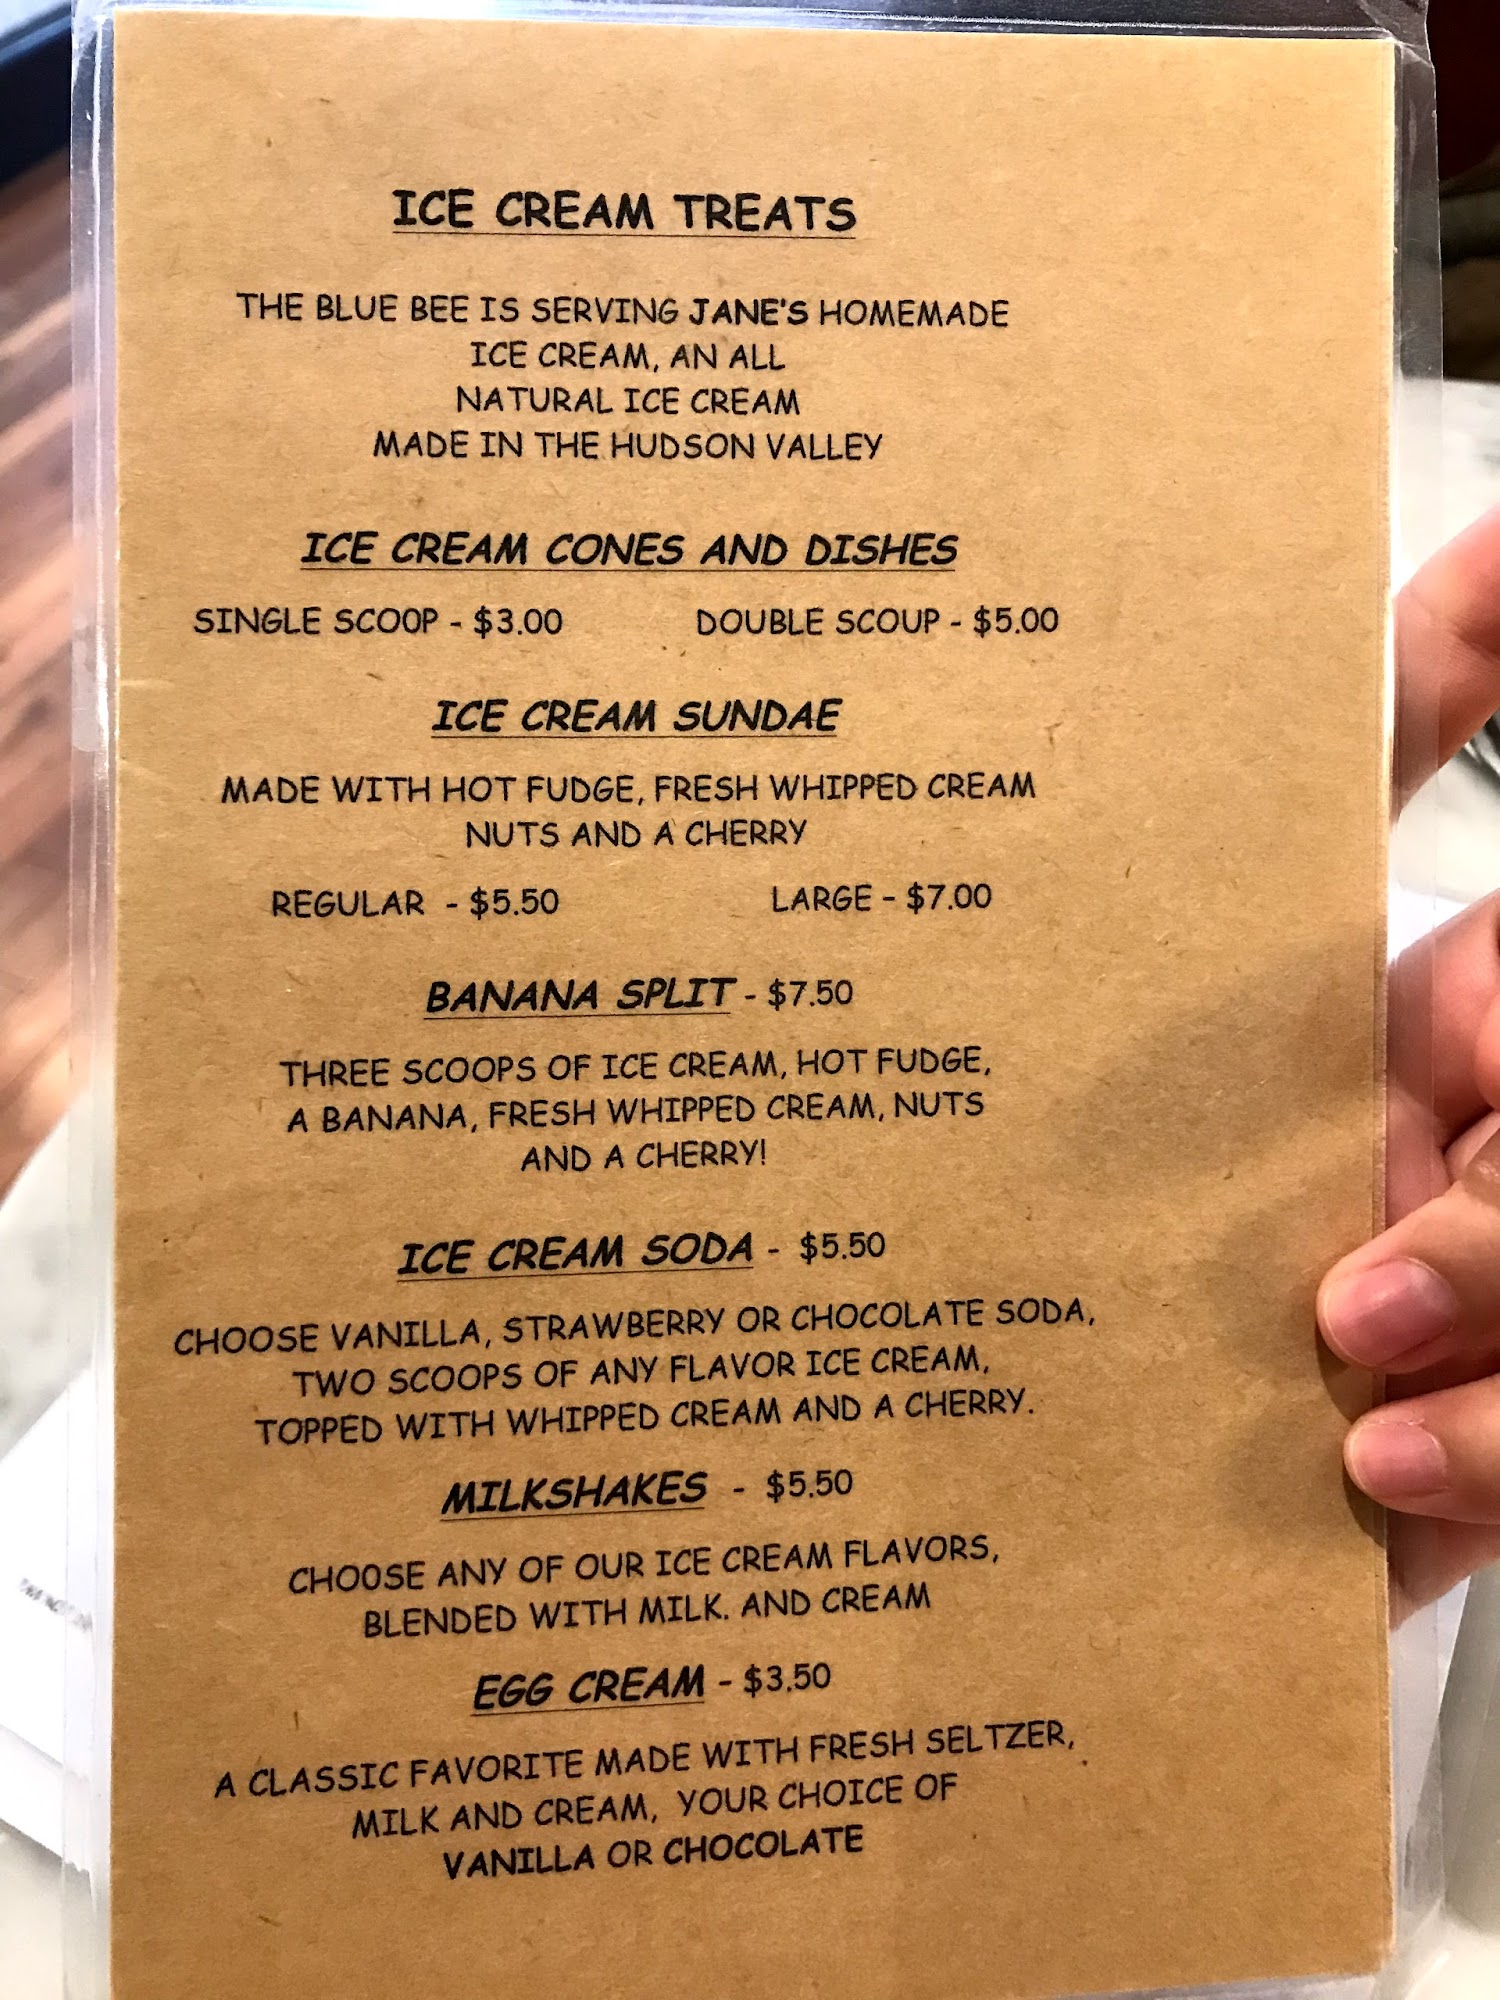 ICE CREAM TREATS
THE BLUE BEE IS SERVING JANE'S HOMEMADE
ICE CREAM, AN ALL
NATURAL ICE CREAM
MADE IN THE HUDSON VALLEY
ICE CREAM CONES AND DISHES
SINGLE SCOOP - $3.00 DOUBLE SCOUP - $5.00
ICE CREAM SUNDAE
MADE WITH HOT FUDGE, FRESH WHIPPED CREAM
NUTS AND A CHERRY
REGULAR - $5.50 LARGE - $7.00
BANANA SPLIT - $7.50
THREE SCOOPS OF ICE CREAM, HOT FUDGE,
A BANANA, FRESH WHIPPED CREAM, NUTS
AND A CHERRY!
ICE CREAM SODA - $5.50
CHOOSE VANILLA, STRAWBERRY OR CHOCOLATE SODA,
TWO SCOOPS OF ANY FLAVOR ICE CREAM,
TOPPED WITH WHIPPED CREAM AND A CHERRY.
MILKSHAKES - $5.50
CHOOSE ANY OF OUR ICE CREAM FLAVORS,
BLENDED WITH MILK. AND CREAM
EGG CREAM - $3.50
A CLASSIC FAVORITE MADE WITH FRESH SELTZER,
MILK AND CREAM, YOUR CHOICE OF
VANILLA OR CHOCOLATE